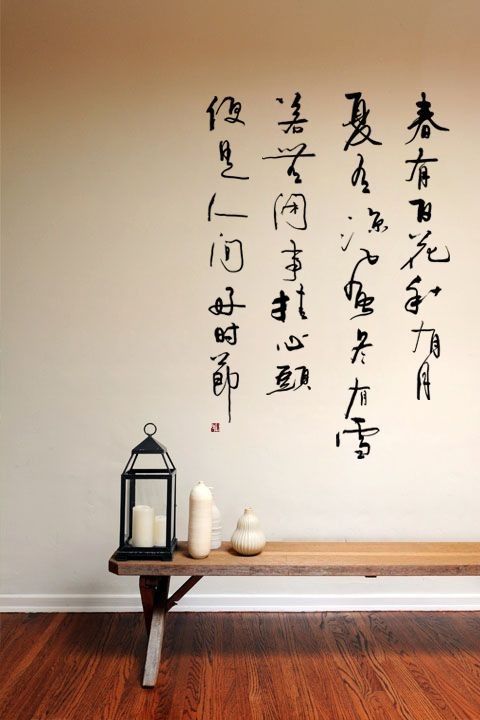 春有百花秋有月
夏有涼風冬有雪
若無閑事挂心頭
便是人间好时節